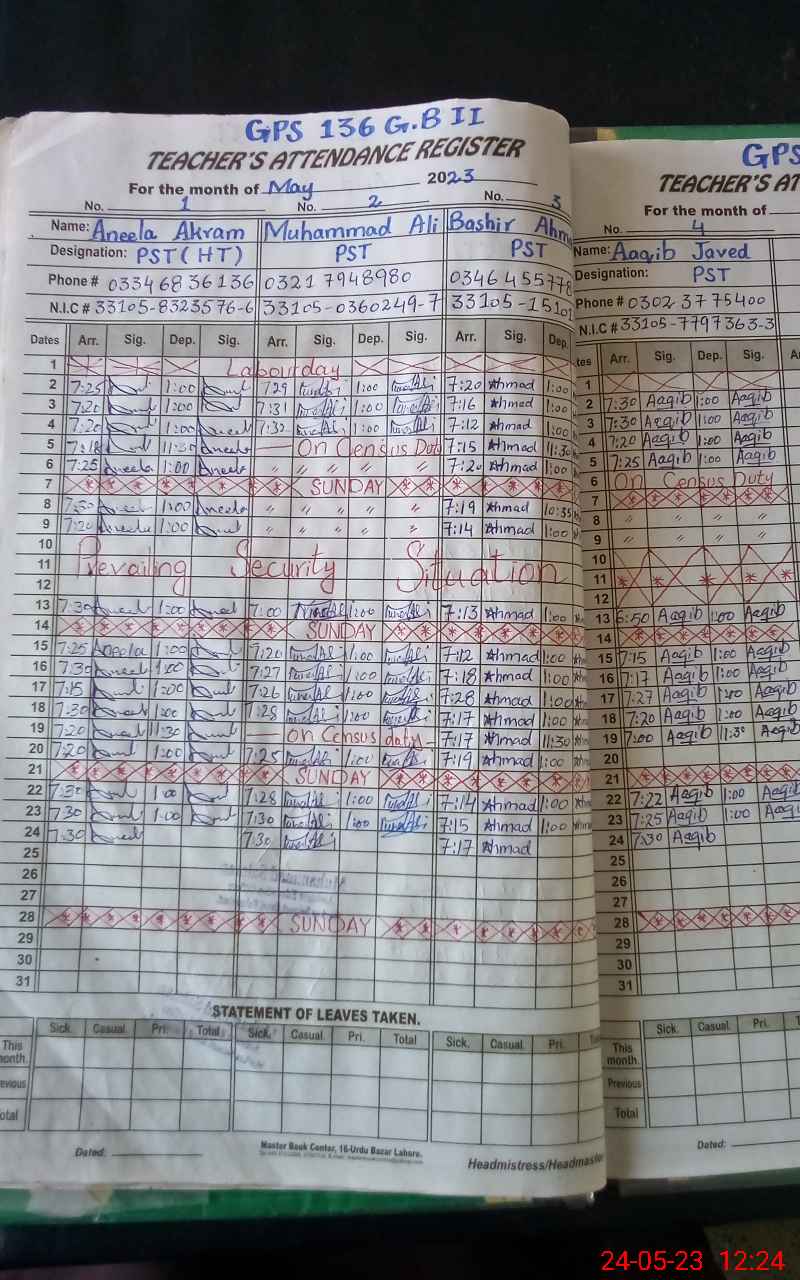 GPS 136 G.B II
TEACHER'S ATTENDANCE REGISTER
For the month of May 2023
No. 1 No. 2 No. 3
Name: Aneela Akram Muhammad Ali Bashir Ahm
Designation: PST (HT) PST PST
Phone # 0334 68 36 136 0321 7948980 0346 455778
N.I.C # 33105-8323576-6 33105-0360249-7 33105-15101
Dates Arr. Sig. Dep. Sig. Arr. Sig. Dep. Sig. Arr. Sig. Dep.
1 Labour day
2 7:25 1:00 7:29 1:00 7:20 Ahmad 1:00
3 7:20 1:00 7:31 1:00 7:16 Ahmad 1:00
4 7:20 1:00 7:32 1:00 7:12 Ahmad 1:00
5 7:18 11:30 On Census Duty 7:15 Ahmad 11:30
6 7:25 Aneela 1:00 Aneela " " " " 7:20 Ahmad 1:00
7 SUNDAY
8 7:30 1:00 Aneela " " " " 7:19 Ahmad 10:35
9 7:20 Aneela 1:00 " " " " 7:14 Ahmad 1:00
10
11 Prevailing Security Situation
12
13 7:30 1:00 7:00 1:00 7:13 Ahmad 1:00
14 SUNDAY
15 7:25 Aneela 1:00 7:20 1:00 7:12 Ahmad 1:00
16 7:30 1:00 7:27 1:00 7:18 Ahmad 1:00
17 7:15 1:00 7:26 1:00 7:28 Ahmad 1:00
18 7:30 1:00 7:28 1:00 7:17 Ahmad 1:00
19 7:20 11:30 On Census duty 7:17 Ahmad 11:30
20 7:20 1:00 7:25 1:00 7:19 Ahmad 1:00
21 SUNDAY
22 7:30 1:00 7:28 1:00 7:14 Ahmad 1:00
23 7:30 1:00 7:30 1:00 7:15 Ahmad 1:00
24 7:30 7:30 7:17 Ahmad
25
26
27
28 SUNDAY
29
30
31
STATEMENT OF LEAVES TAKEN.
Sick. Casual. Pri. Total Sick. Casual. Pri. Total Sick. Casual. Pri.
This month.
Previous
Total
Dated:
Master Book Center, 16-Urdu Bazar Lahore.
Headmistress/Headmaster
GPS
TEACHER'S AT
For the month of
No. 4
Name: Aaqib Javed
Designation: PST
Phone # 0302 37 75400
N.I.C # 33105-7797363-3
tes Arr. Sig. Dep. Sig.
1
2 7:30 Aaqib 1:00 Aaqib
3 7:30 Aaqib 1:00 Aaqib
4 7:20 Aaqib 1:00 Aaqib
5 7:25 Aaqib 1:00 Aaqib
6 On Census Duty
7
8 " " " "
9 " " " "
10
11
12
13 6:50 Aaqib 1:00 Aaqib
14
15 7:15 Aaqib 1:00 Aaqib
16 7:17 Aaqib 1:00 Aaqib
17 7:27 Aaqib 1:00 Aaqib
18 7:20 Aaqib 1:00 Aaqib
19 7:00 Aaqib 11:30 Aaqib
20
21
22 7:22 Aaqib 1:00 Aaqib
23 7:25 Aaqib 1:00 Aaqib
24 7:30 Aaqib
25
26
27
28
29
30
31
Sick. Casual. Pri.
This month.
Previous
Total
Dated:
24-05-23 12:24